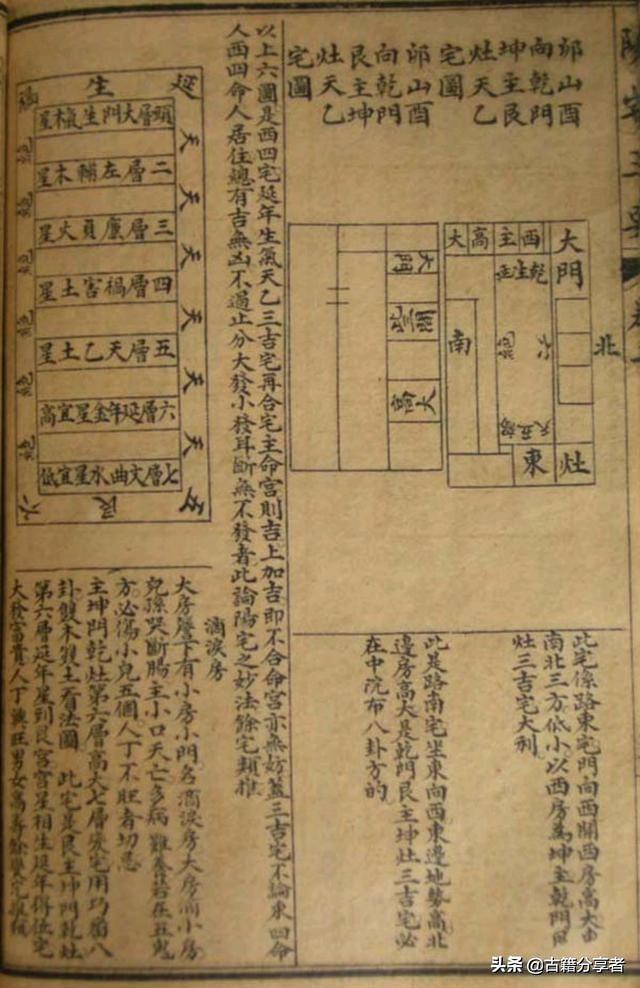 陽宅三要
邱山酉
向乾門
坤主艮
灶天乙
宅圖
邱山酉
向乾門
艮主坤
灶天乙
宅圖
大門
西主高大
北
南
東
灶
大門
高大
此宅係路東宅門向西關西房高大
南北三方低小以西房為坤主乾門
灶三吉宅大利
此是路南宅坐東向西東邊地勢高北
邊房高大是乾門艮主坤灶三吉宅必
在中院布八卦方的
以上六圖是西四宅延年生氣天乙三吉宅再合宅主命宮則吉上加吉即不合命宮亦無妨蓋三吉宅不論東四命
人西四命人居住總有吉無凶不過止分大發小發耳斷無不發者此論陽宅之妙法餘宅類推
延生禍
頭層大門生氣木星
二層左輔木星
三層廉貞火星
四層禍害土星
五層天乙土星
六層延年金星宜高
七層文曲水星宜低
天
天
天
天
天
天
五艮六
滴淚房
大房簷下有小房小門為滴淚房大房前小房
兒孫哭斷腸主小口夭亡多病難養若在五鬼
方必傷小兒五個人丁不旺者切忌
主坤門乾灶第六層高大七層變宅用巧番八
卦雙木雙土看法圖 此宅是艮主坤門乾灶
第六層延年星到艮宮宮星相生延年得位宅
大發富貴人丁興旺男女高壽餘變宅
头条 @古籍分享者